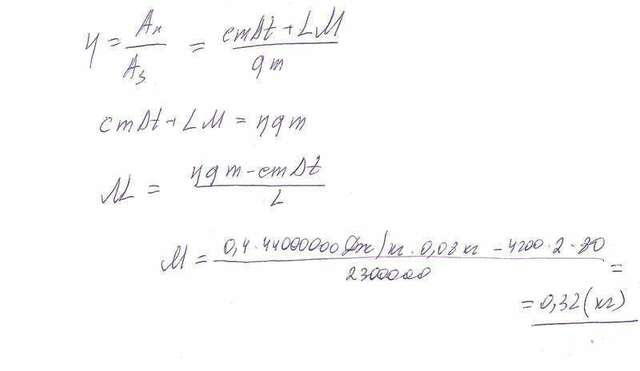 η = Aп/Aз = (cmΔt + LM)/(qm)
cmΔt + LM = ηqm
M = (ηqm - cmΔt)/L
M = (0,4 · 44000000 Дж/кг · 0,08 кг - 4200 · 2 · 80)/2300000 =
= 0,32 (кг)